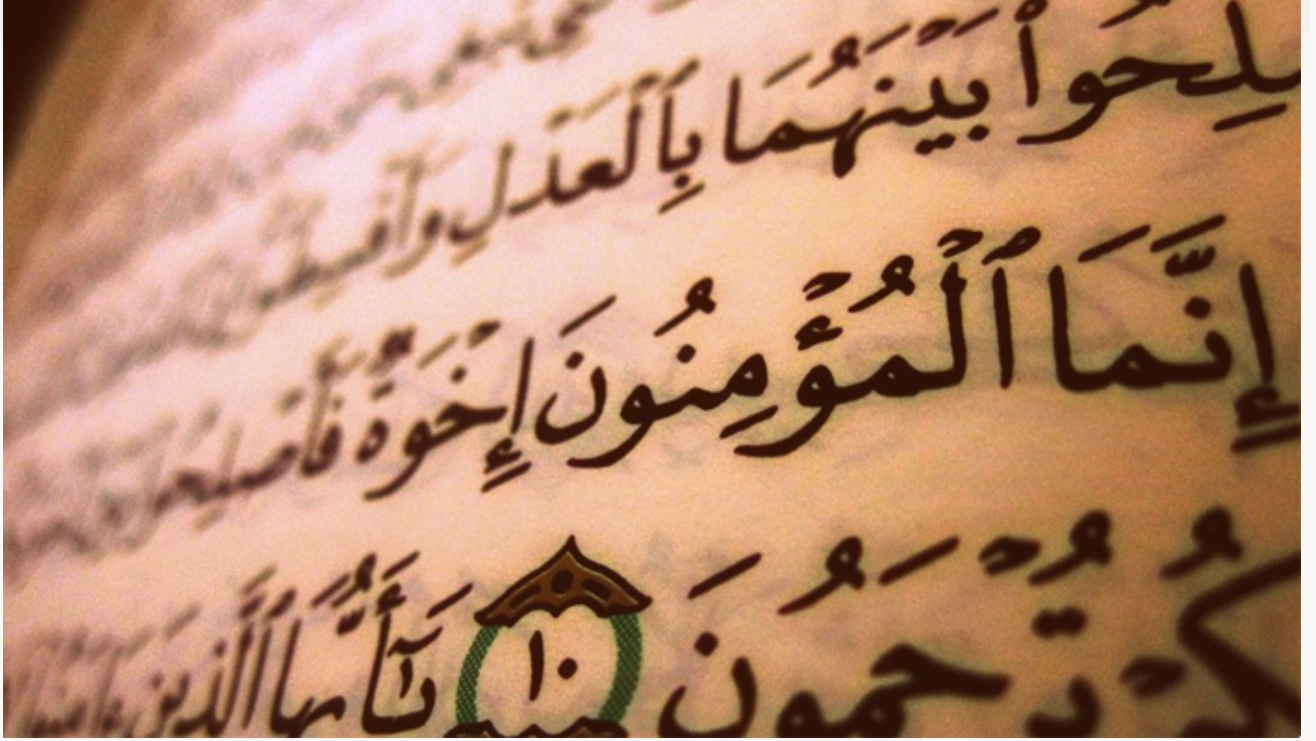 صْلِحُوا۟ بَيْنَهُمَا بِٱلْعَدْلِ وَأَقْسِطُوٓا۟
إِنَّمَا ٱلْمُؤْمِنُونَ إِخْوَةٌ فَأَصْلِحُوا۟
كُمْ تُرْحَمُونَ ١٠ يَـٰٓأَيُّهَا ٱلَّذِينَ ءَامَنُوا۟